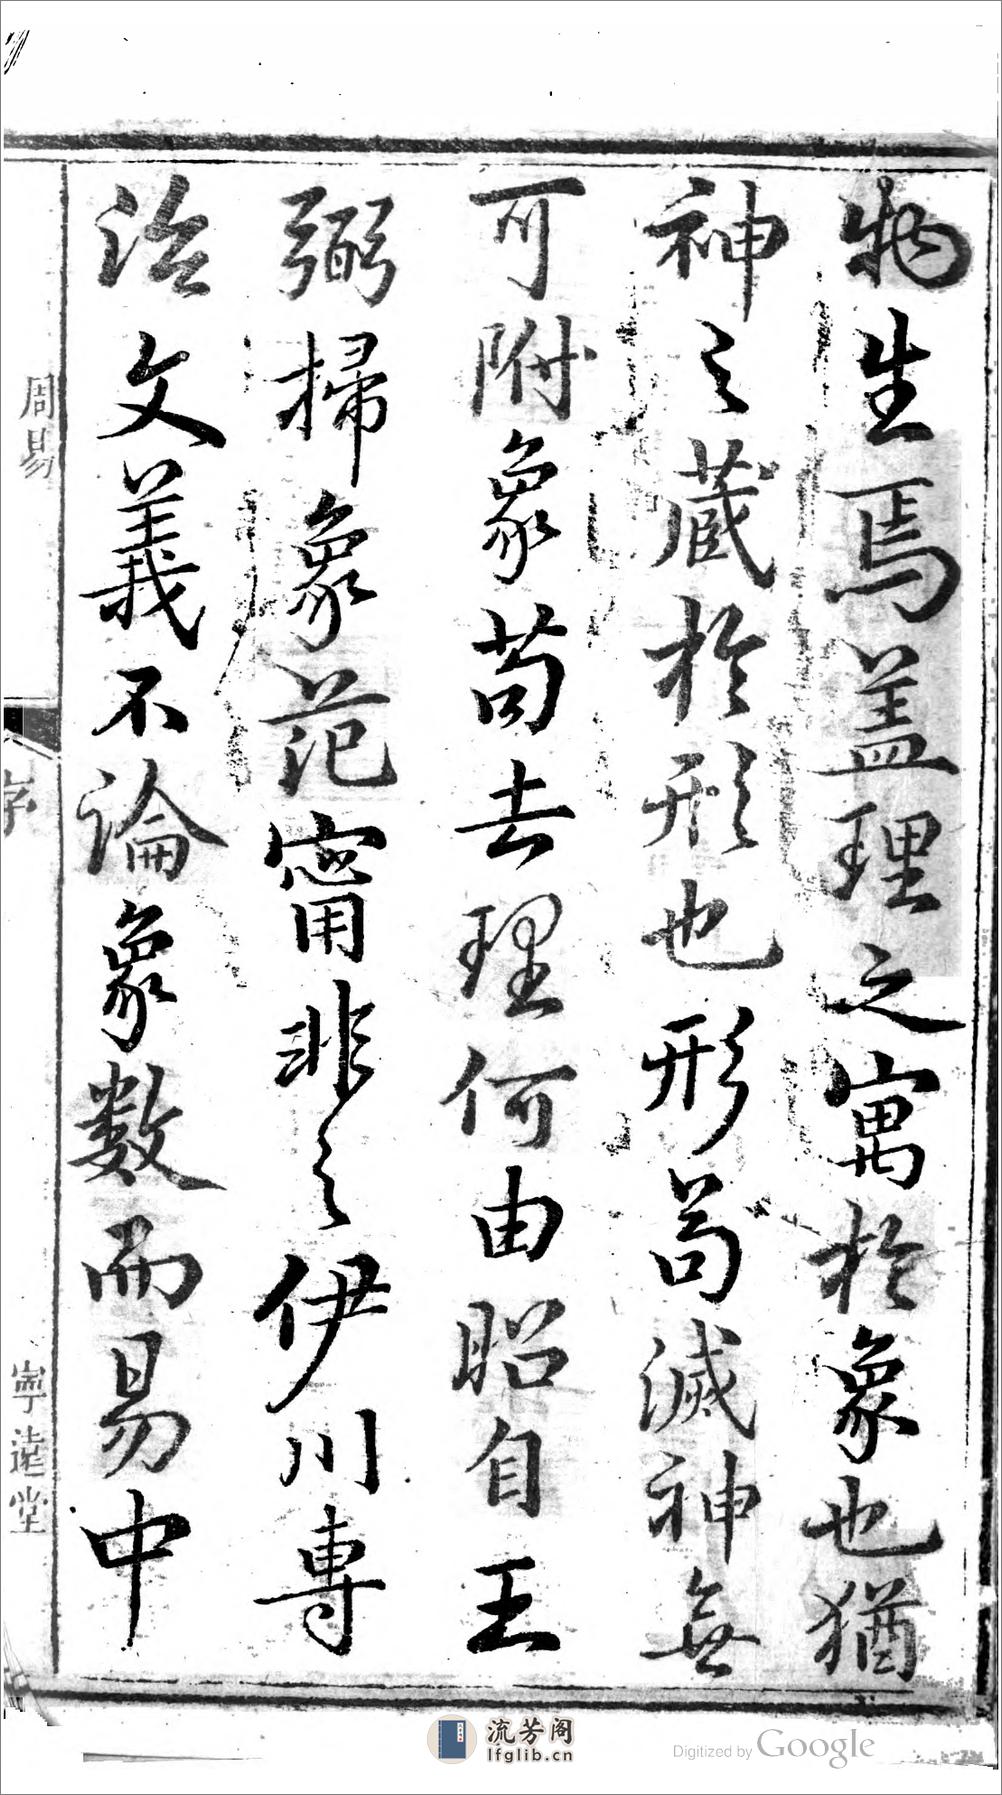 物生焉盖理之寓於象也猶
神之蔵於形也形苟滅神無
可附象苟去理何由昭自王
弼掃象范甯非之伊川專
治文義不論象數而易中
周易
序
寧遠堂
流芳阁
lfglib.cn
Digitized by Google